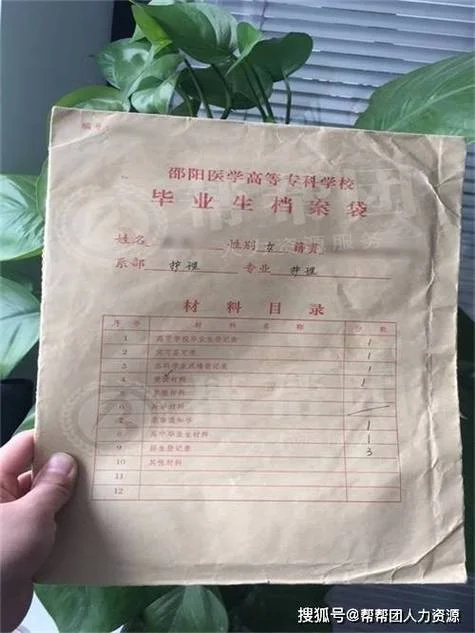 编号
邵阳医学高等专科学校
毕业生档案袋
姓名 性别 女 籍贯
系部 护理 专业 护理
材料目录
序号 材料名称 份数
1 高等学校毕业生登记表 1
2 实习鉴定表 1
3 各科学业成绩登记表 1
4 党团材料 1
5 奖惩材料
6
7 录取通知书 1
8 高中毕业生材料 1
9 招生登记表 3
10 其他材料
11
12
搜狐号@帮帮团人力资源